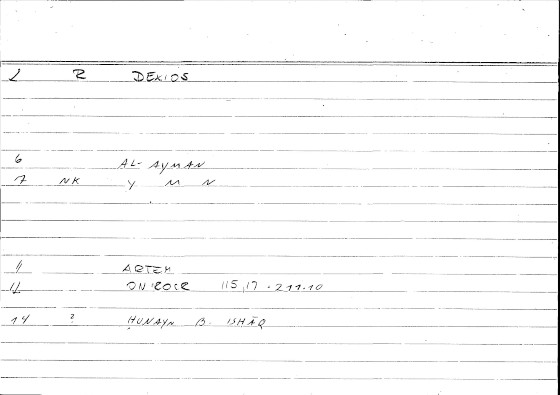 2 R DEXIOS
6 AL-AYMAN
7 NK Y M N
11 ARTEM
12 115,17 - 211.10
14 ? ḤUNAYN B. ISḤĀQ